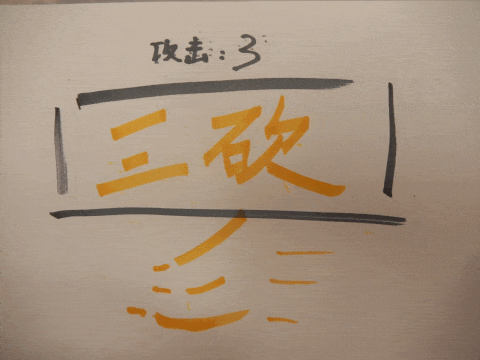 攻击：3
三砍